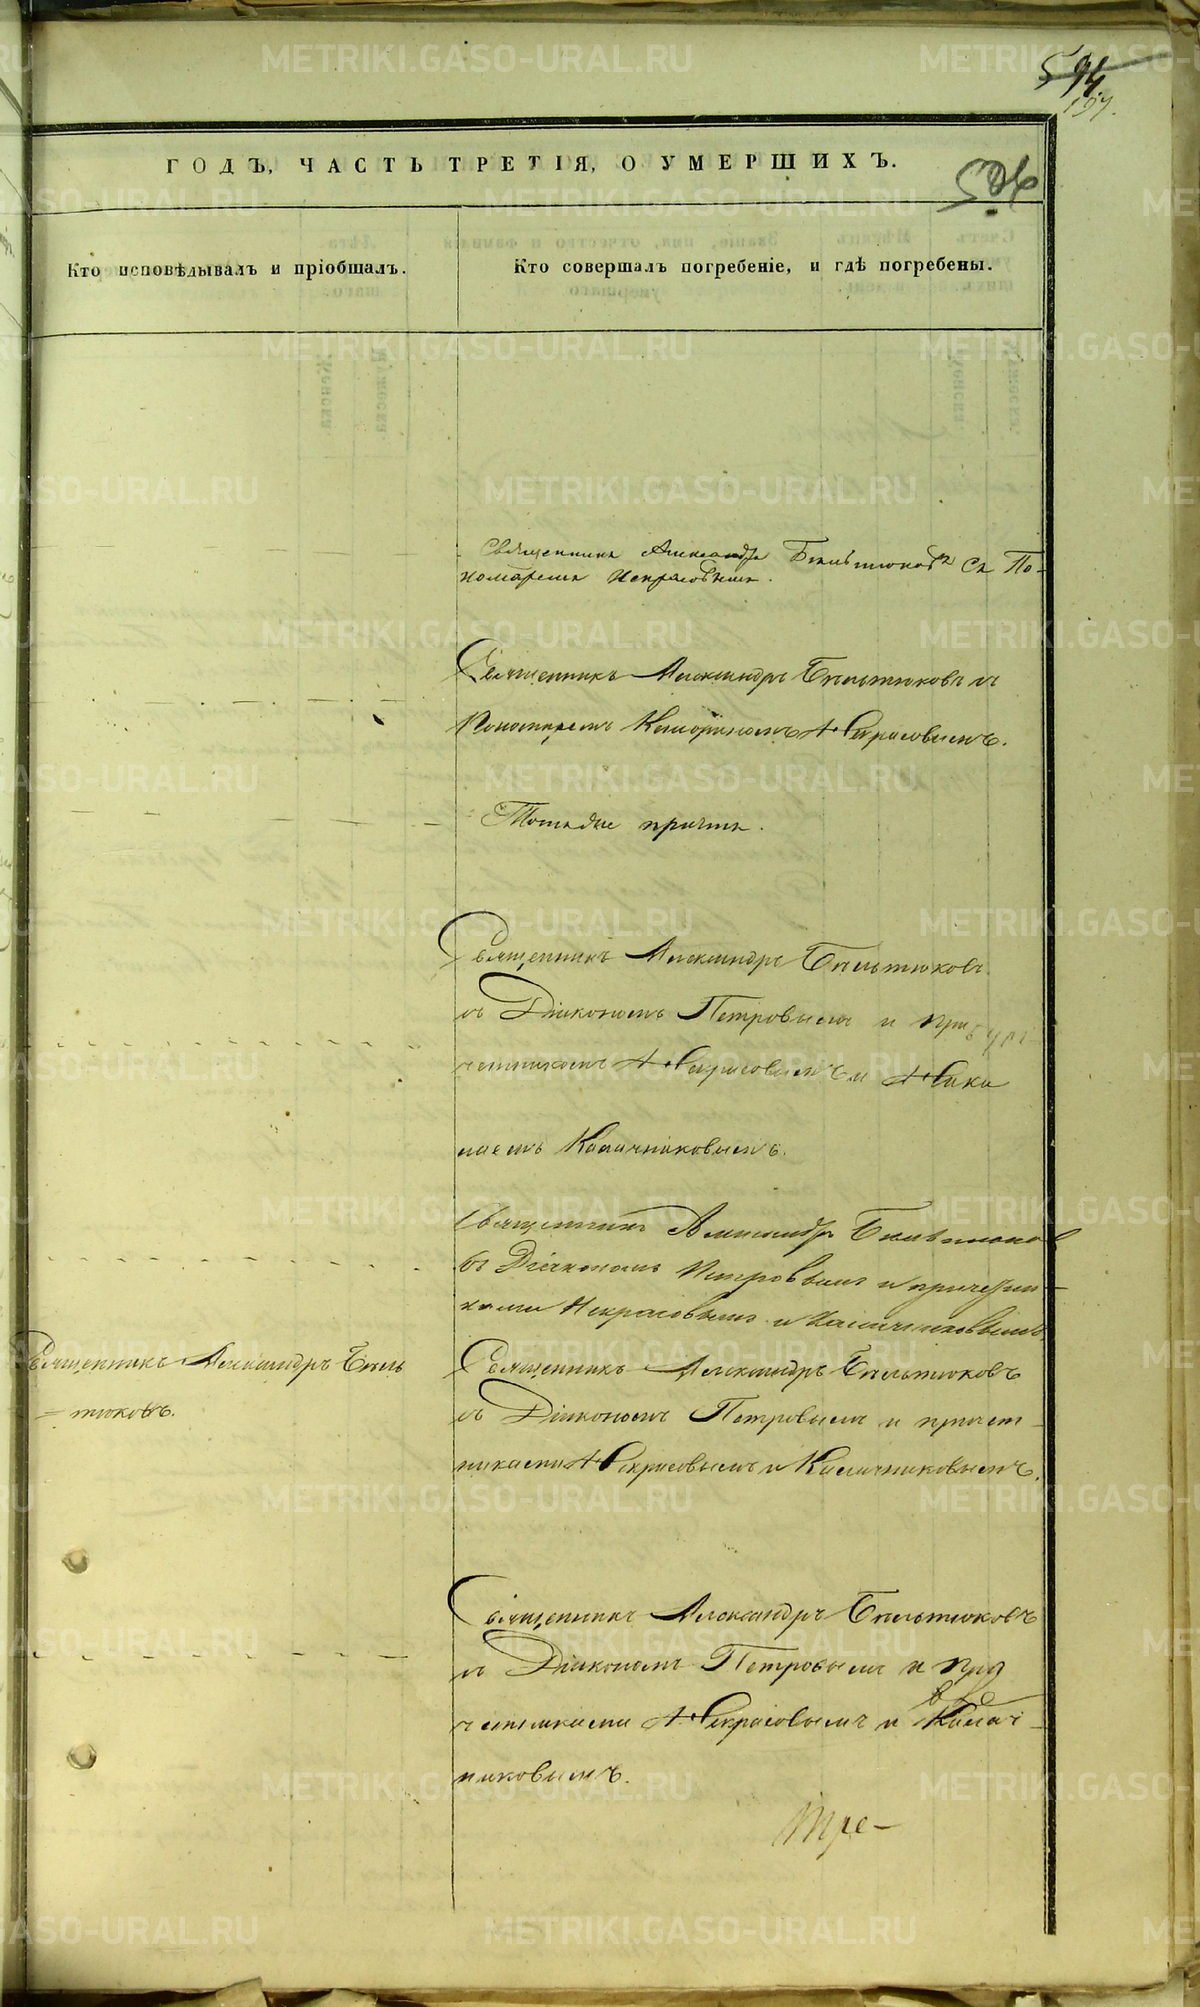 594
197.
ГОДЪ, ЧАСТЬ ТРЕТІЯ, О УМЕРШИХЪ.
506
Кто исповѣдывалъ и пріобщалъ.
Кто совершалъ погребеніе, и гдѣ погребены.
Священникъ Александръ Бѣльтюковъ съ По-
номаремъ Некрасовымъ.
Священникъ Александръ Бѣльтюковъ съ
Пономаремъ Некрасовымъ.
Тотъ же причтъ.
Священникъ Александръ Бѣльтюковъ
съ Діакономъ Петровымъ и при
четникомъ Некрасовымъ и
Каличниковымъ.
Священникъ Александръ Бѣльтюковъ
съ Діакономъ Петровымъ и причетни-
ками Некрасовымъ и Каличниковымъ
Священникъ Александръ Бѣль
=тюковъ.
Священникъ Александръ Бѣльтюковъ
съ Діакономъ Петровымъ и причет-
никами Некрасовымъ и Каличниковымъ.
Священникъ Александръ Бѣльтюковъ
съ Діакономъ Петровымъ и при
четниками Некрасовымъ и Калич-
никовымъ.
Тре-
METRIKI.GASO-URAL.RU